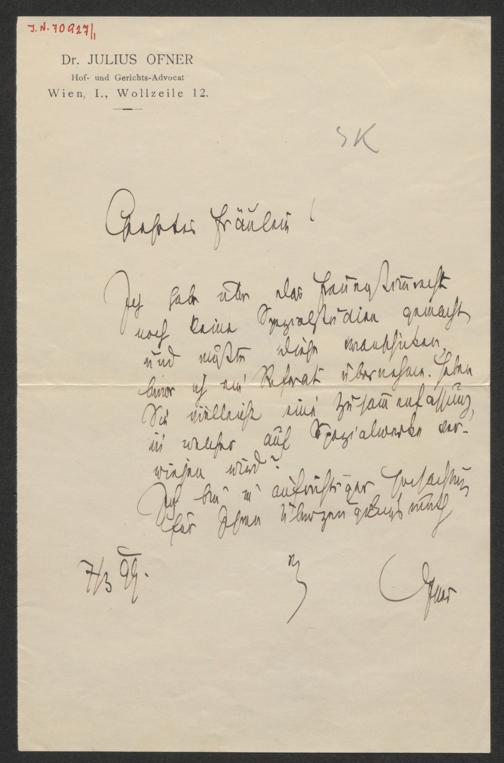 J.N. 70927/1
Dr. JULIUS OFNER
Hof- und Gerichts-Advocat
Wien, I., Wollzeile 12.
SK
Geehrtes Fräulein!
Ich habe über das Frauenstimmrecht
noch keine Spezialstudien gemacht
und müßte diese vorausschicken,
bevor ich ein Referat übernehme. Haben
Sie vielleicht eine Zusammenfassung,
in welcher auf Spezialwerke ver-
wiesen wird?
Ich bin in aufrichtiger Hochachtung
für Ihren Überzeugungsmuth
7/3 99.
Ofner